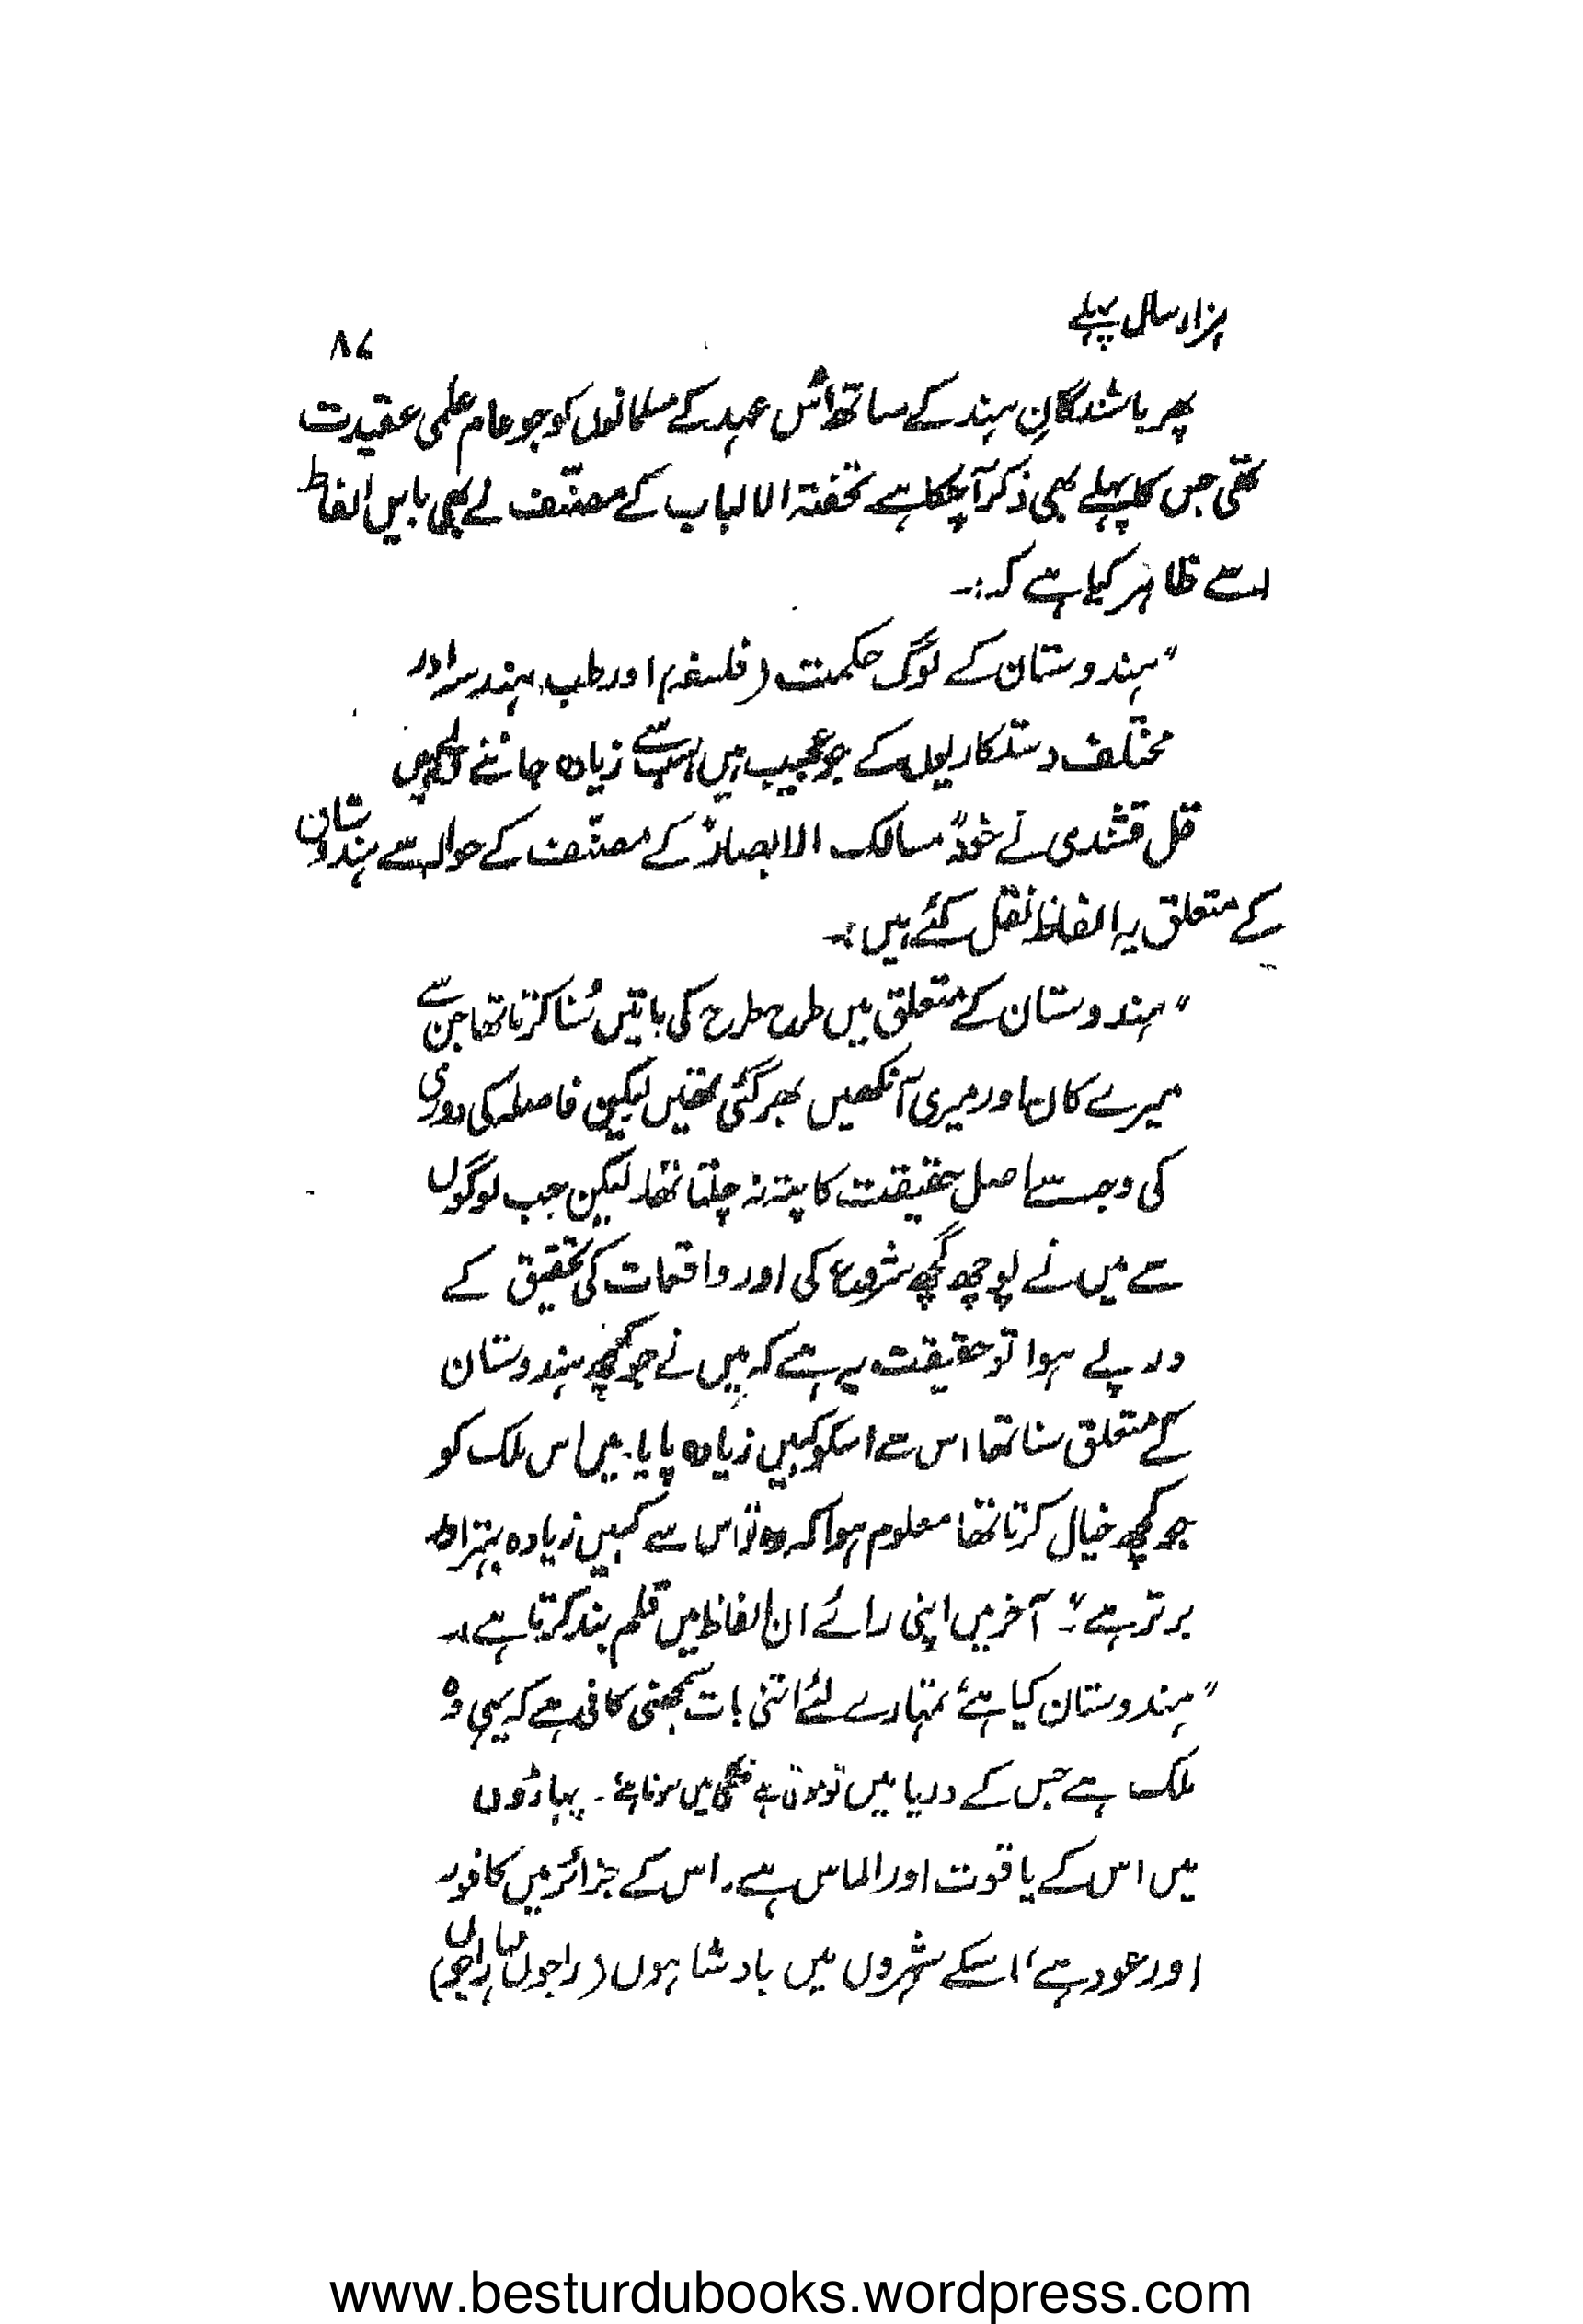 ہزار سال پہلے
۸۷
پھر باشندگانِ ہند کے ساتھ اس عہد کے مسلمانوں کو جو عام علمی عقیدت
تھی جس کا پہلے بھی ذکر آچکا ہے تحفتہ الالباب کے مصنّف نے بھی بایں الفاظ
اسے ظاہر کیا ہے کہ:۔
"ہندوستان کے لوگ حکمت (فلسفہ) اور طب، ہندسہ اور
مختلف دستکاریوں کے جو عجیب ہیں سب سے زیادہ جاننے والے ہیں
قل قشندی نے خود "مسالک الابصار" کے مصنّف کے حوالہ سے ہندوستان
کے متعلق یہ الفاظ نقل کئے ہیں:۔
"ہندوستان کے متعلق میں طرح طرح کی باتیں سُنا کرتا تھا جن سے
میرے کان اور میری آنکھیں بھر گئی تھیں لیکن فاصلہ کی دوری
کی وجہ سے اصل حقیقت کا پتہ نہ چلتا تھا۔ لیکن جب لوگوں
سے میں نے پوچھ گچھ شروع کی اور واقعات کی تحقیق کے
درپے ہوا تو حقیقت یہ ہے کہ میں نے جو کچھ ہندوستان
کے متعلق سنا تھا اس سے اسکو کہیں زیادہ پایا۔ میں اس ملک کو
جو کچھ خیال کرتا تھا معلوم ہوا کہ وہ تو اس سے کہیں زیادہ بہتر اور
برتر ہے"۔ آخر میں اپنی رائے ان الفاظ میں قلم بند کرتا ہے:۔
"ہندوستان کیا ہے، تمہارے لئے اتنی بات سمجھنی کافی ہے کہ یہی وہ
ملک ہے جس کے دریا میں تو موتی ہے خشکی میں سونا ہے۔ پہاڑوں
میں اس کے یاقوت اور الماس ہے۔ اس کے جزائر میں کافور
اور عود ہے، اسکے شہروں میں بادشاہوں (راجوں مہاراجوں)
www.besturdubooks.wordpress.com